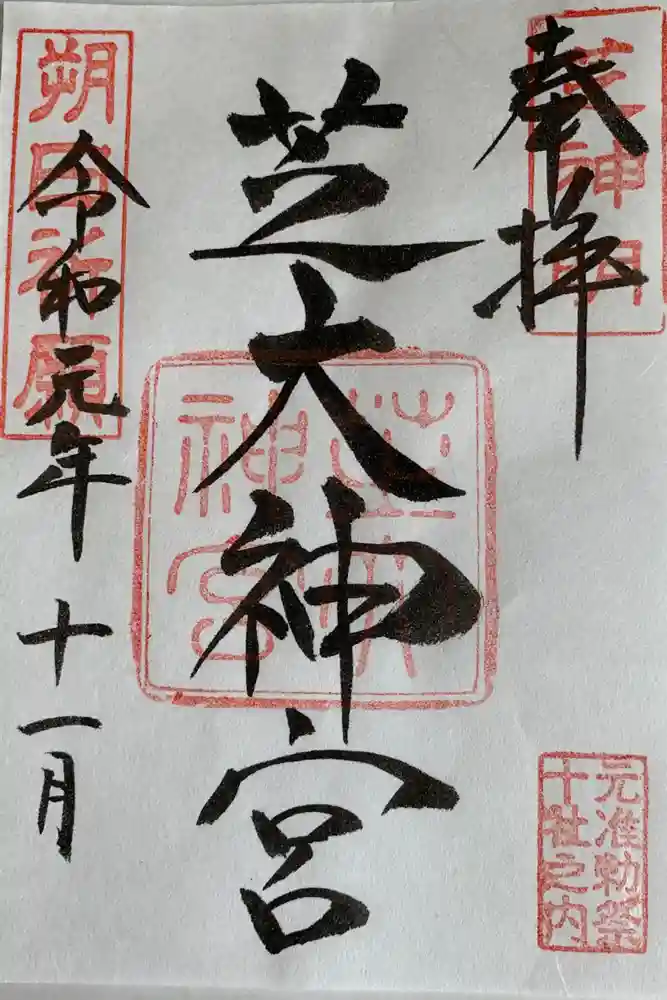 奉拝
芝神明
芝大神宮
芝大
神宮
令和元年十一月
朔日祈願
元准勅祭
十社之内